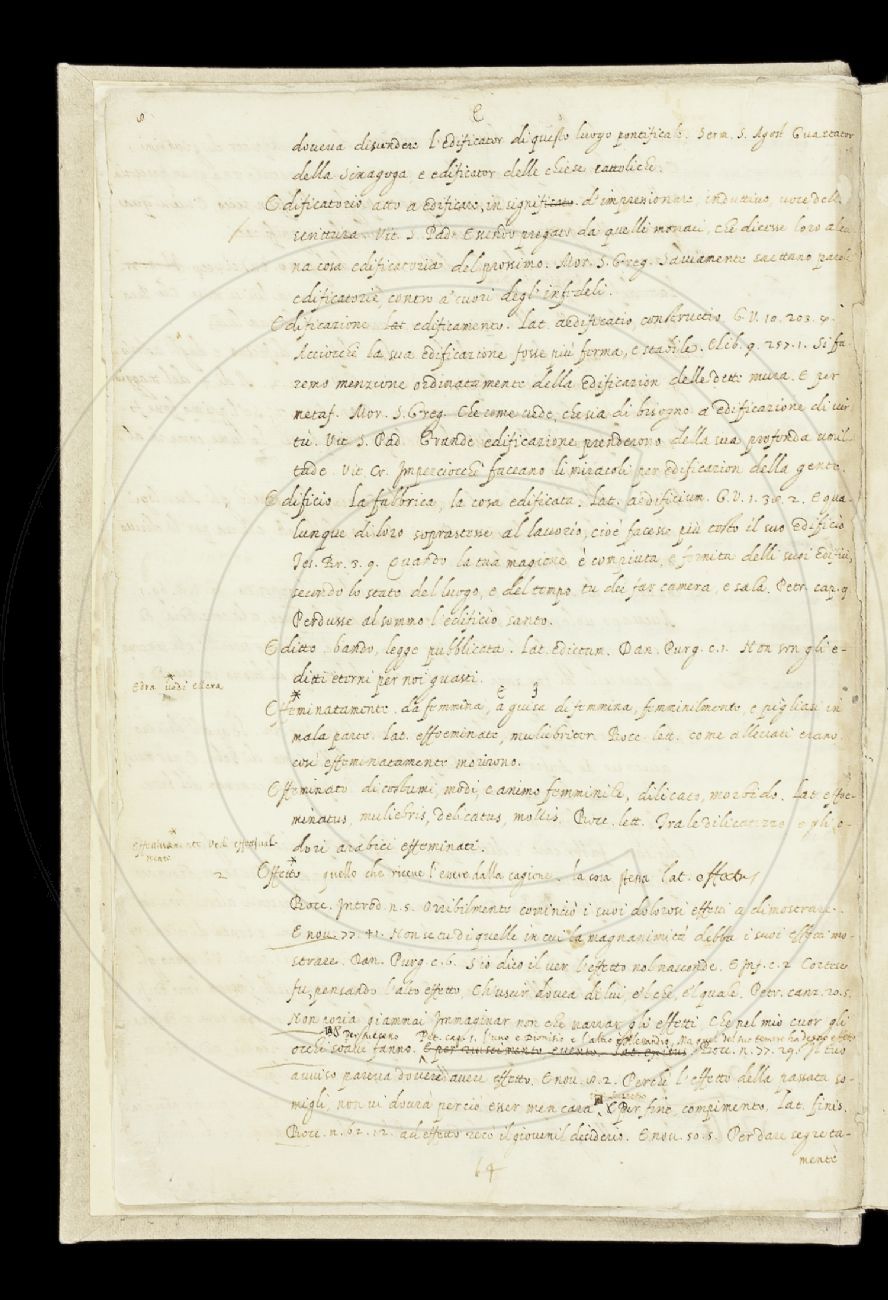 8
E
doveva discendere l'edificator di questo luogo pontificale. Serm. S. Agost. Guastator
della Sinagoga e edificator delle chiese cattoliche.
Edificatorio. atto a edificare, in signific. d'impressionare, induttivo, voce dell.
scrittura. Vit. S. Pad. Essendo pregato da quelli monaci, che dicesse loro alcu
na cosa edificatoria del prossimo. Mor. S. Greg. Saviamente saettano parole
edificatorie, contro a' cuori degl' infedeli.
Edificazione. lat. edificamento. Lat. aedificatio, constructio. G. V. 10. 203. 4.
Acciocchè la sua edificazione fosse più ferma, e stabile. E lib. 9. 257. 1. Si fa-
remo menzione ordinatamente della edificazion delle dette mura. E per
metaf. Mor. S. Greg. Che come vede, che sia di bisogno a edificazione di vir
tù. Vit. S. Pad. Grande edificazione prenderono della sua profonda umil-
tade. Vit. Cr. Imperciocchè faceano li miracoli per edificazion della gente.
Edificio. la fabbrica, la cosa edificata. Lat. aedificium. G. V. 1. 38. 2. E qua-
lunque di loro soprastesse al lavorio, cioè facesse più tosto il suo edificio
Tes. Br. 3. 9. Quando la tua magione è compiuta, e fornita delli suoi edifici,
secondo lo stato del luogo, e del tempo, tu dei far camera, e sala. Petr. cap. 9.
Perdusse al sommo l'edificio santo.
Editto. bando, legge pubblicata. Lat. Edictum. Dan. Purg. c. 1. Non son gli e-
ditti eterni per noi guasti.
Edra vedi Ellera
Effeminatamente. da femmina, a guisa di femmina, femminilmente, e pigliasi in
mala parte. Lat. effoeminate, muliebriter. Bocc. lett. come allevati erano
così effeminatamente morirono.
Effeminato. di costumi, modi, e animo femminile, dilicato, morbido. Lat. effoe-
minatus, muliebris, delicatus, mollis. Bocc. lett. Tra le dilicatezze e gli o-
dori arabici effeminati.
Effettivamente vedi effettual-
mente
2 Effetto. quello che riceve l'essere dalla cagione. la cosa stessa lat. effectus
Bocc. Introd. n. 5. Orribilmente cominciò i suoi dolorosi effetti a dimostrare.
E nov. 77. 41. Non se tu di quelle in cui la magnanimità debba i suoi effetti mo-
strare. Dan. Purg. c. 6. S'io dico il ver l'effetto nol nasconde. E Inf. c. 2. Cortese
fu, pensando l'alto effetto, Ch'uscir dovea di lui, e 'l chi, e 'l quale. Petr. canz. 20. 5.
Non poria giammai Immaginar non che narrar gli effetti, Che nel mio cuor gli
occhi soavi fanno. E per riuscimento evento. Lat. exitus. Bocc. n. 77. 29. Il tuo
avviso pareva dovere avere effetto. E nov. 82. 2. Perchè l'effetto della passata so-
migli, non vi dovrà perciò esser men cara. E Per fine, compimento. Lat. finis.
Bocc. n. 62. 12. ad effetto recò il giovenil desiderio. E nov. 50. 5. Per dare segreta-
mente
64